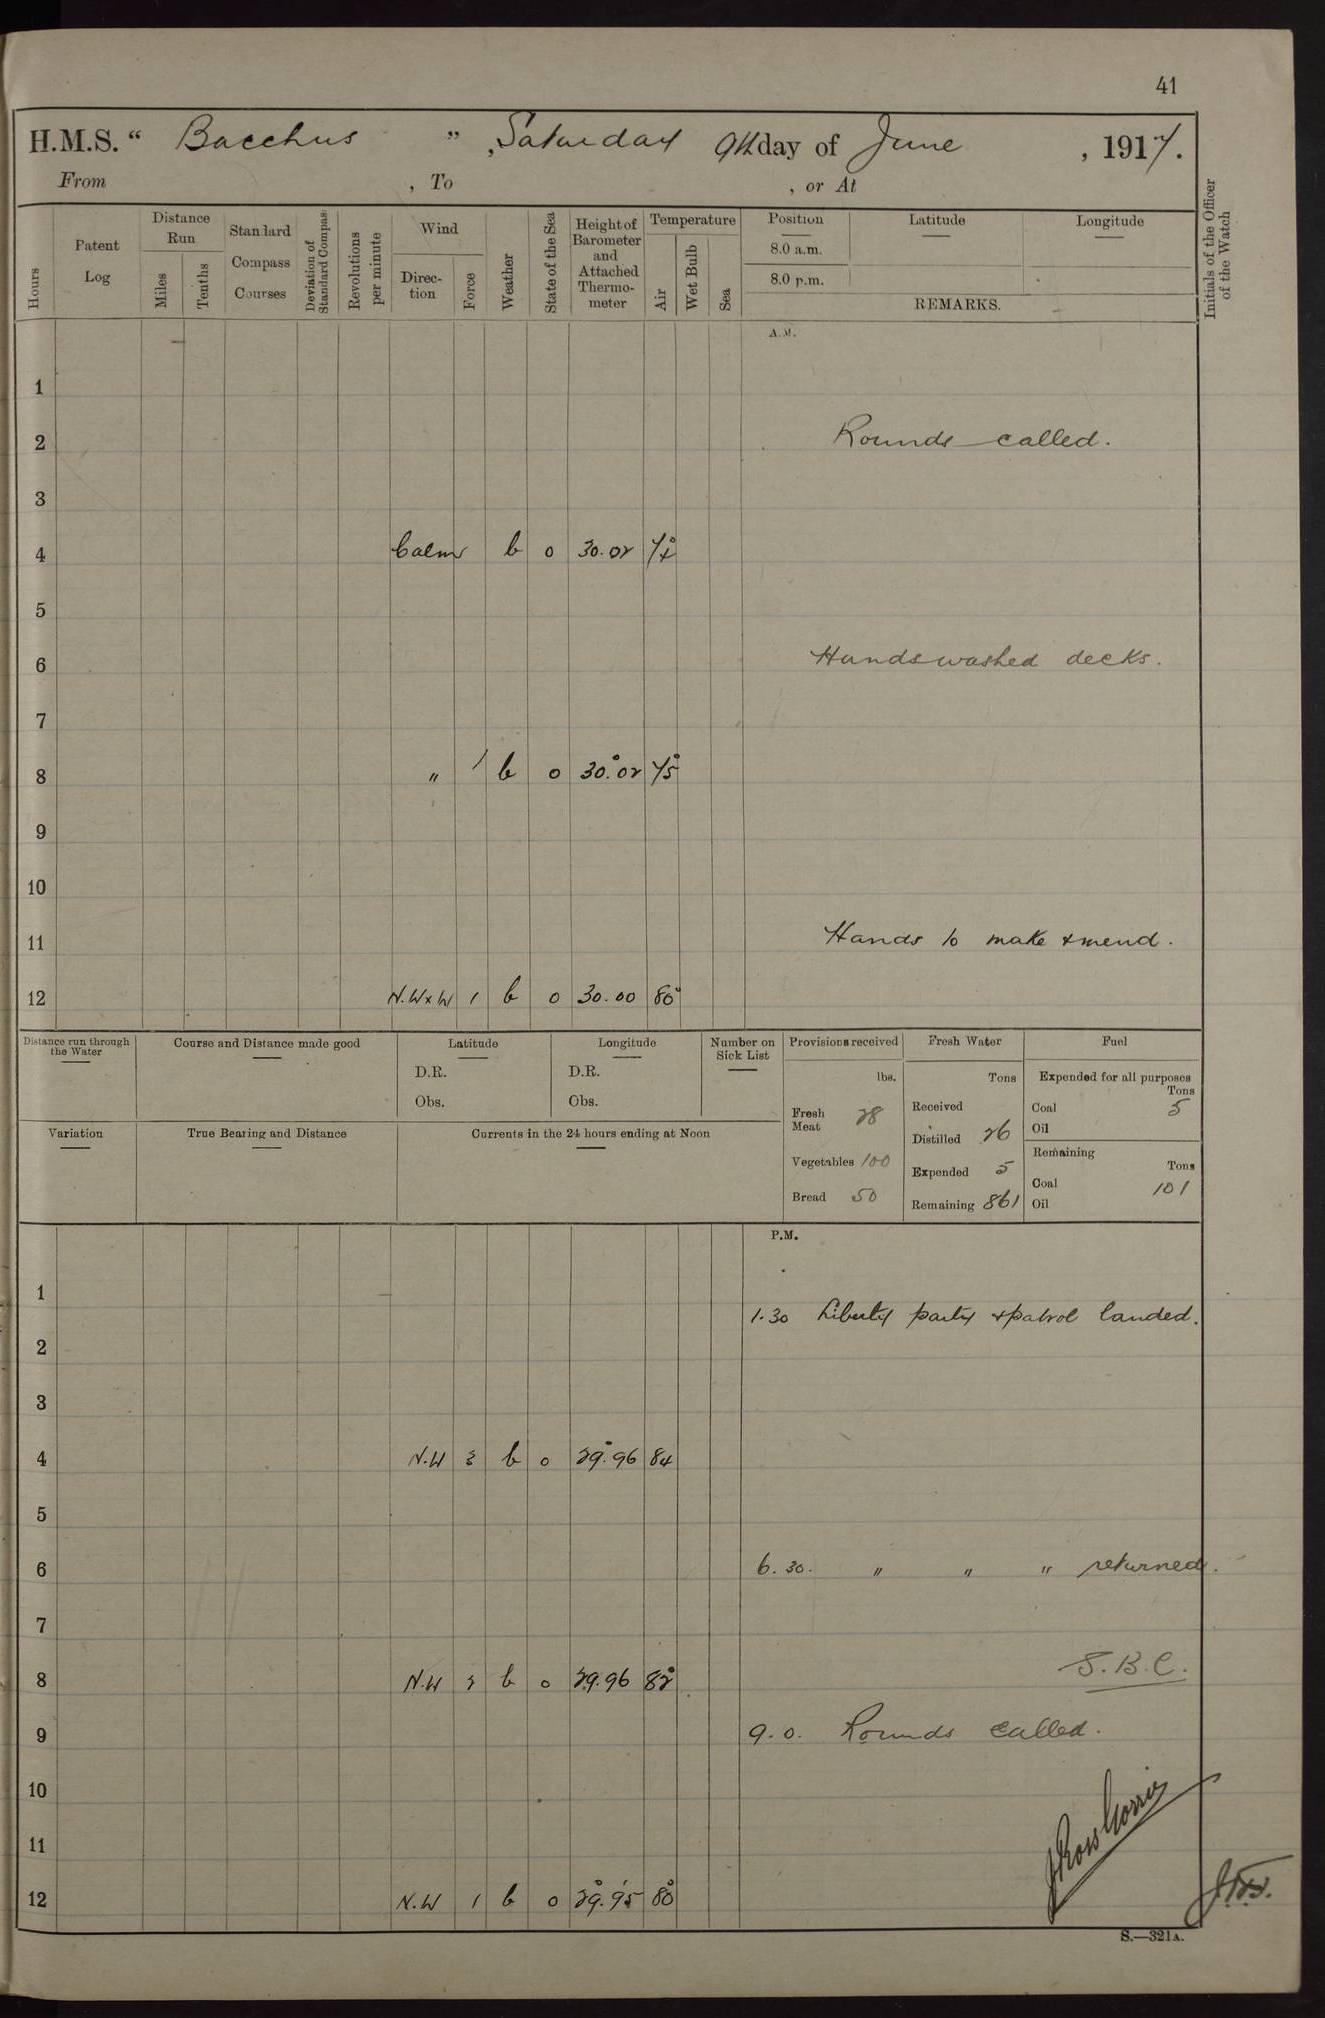 41
H.M.S. “ Bacchus ” , Saturday 9th day of June , 1917.
From , To , or At
Hours
Patent Log
Distance Run
Miles
Tenths
Standard Compass Courses
Deviation of Standard Compass
Revolutions per minute
Wind
Direction
Force
Weather
State of the Sea
Height of Barometer and Attached Thermometer
Temperature
Air
Wet Bulb
Sea
Position Latitude Longitude
8.0 a.m.
8.0 p.m.
REMARKS.
Initials of the Officer of the Watch
A.M.
1
2 Rounds called.
3
4 Calm b 0 30.02 74°
5
6 Hands washed decks.
7
8 " 1 b 0 30.02 75°
9
10
11 Hands to make & mend.
12 N.W x W 1 b 0 30.00 80°
Distance run through the Water
Course and Distance made good
Latitude
D.R.
Obs.
Longitude
D.R.
Obs.
Number on Sick List
Variation
True Bearing and Distance
Currents in the 24 hours ending at Noon
Provisions received
lbs.
Fresh Meat 28
Vegetables 100
Bread 50
Fresh Water
Tons
Received
Distilled 26
Expended 5
Remaining 861
Fuel
Expended for all purposes
Tons
Coal 5
Oil
Remaining
Tons
Coal 101
Oil
P.M.
1
1.30 Liberty party & patrol landed.
2
3
4 N.W 2 b 0 29.96 84
5
6 6.30. " " " returned.
7
S.B.C.
8 N.W 2 b 0 29.96 82°
9 9.0. Rounds called.
10
11
J Ross Gorrie
12 N.W 1 b 0 29.95 80°
S.—321A.